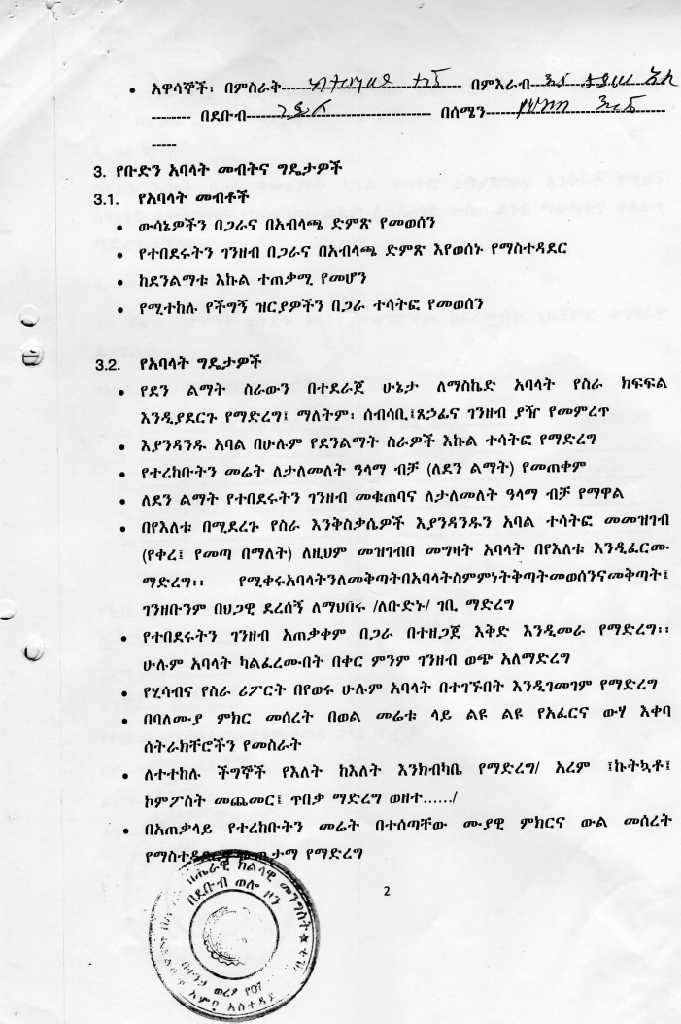 • አዋሳኞች፡ በምስራት------------------------ በምእራብ----
-------- በደቡብ------------------------ በሰሜን------------------------
-----
3. የቡድን አባላት መብትና ግዴታዎች
3.1. የአባላት መብቶች
• ውሳኔዎችን በጋራና በአብላጫ ድምጽ የመወሰን
• የተበደሩትን ገንዘብ በጋራና በአብላጫ ድምጽ እየወሰኑ የማስተዳደር
• ከደንልማቱ እኩል ተጠቃሚ የመሆን
• የሚተከሉ የችግኝ ዝርያዎችን በጋራ ተሳትፎ የመወሰን
3.2. የአባላት ግዴታዎች
• የደን ልማት ስራውን በተደራጀ ሁኔታ ለማስኬድ አባላት የስራ ክፍፍል
እንዲያደርጉ የማድረግ፤ ማለትም፡ ሰብሳቢ፤ጸኃፊና ገንዘብ ያዥ የመምረጥ
• እያንዳንዱ አባል በሁሉም የደንልማት ስራዎች እኩል ተሳትፎ የማድረግ
• የተረከቡትን መሬት ለታለመለት ዓላማ ብቻ (ለደን ልማት) የመጠቀም
• ለደን ልማት የተበደሩትን ገንዘብ መቁጠባና ለታለመለት ዓላማ ብቻ የማዋል
• በየእለቱ በሚደረጉ የስራ እንቅስቃሴዎች እያንዳንዱን አባል ተሳትፎ መመዝገብ
(የቀረ፤ የመጣ በማለት) ለዚህም መዝገብበ መግዛት አባላት በየእለቱ እንዲፈርሙ
ማድረግ፡፡ የሚቀሩአባላትንለመቅጣትበአባላትስምምነትቅጣትመወሰንናመቅጣት፤
ገንዘቡንም በህጋዊ ደረሰኝ ለማህበሩ /ለቡድኑ/ ገቢ ማድረግ
• የተበደሩትን ገንዘብ አጠቃቀም በጋራ በተዘጋጀ እቅድ እንዲመራ የማድረግ፡፡
ሁሉም አባላት ካልፈረሙበት በቀር ምንም ገንዘብ ወጭ አለማድረግ
• የሂሳብና የስራ ሪፖርት በየወሩ ሁሉም አባላት በተገኙበት እንዲገመገም የማድረግ
• በባለሙያ ምክር መሰረት በወል መሬቱ ላይ ልዩ ልዩ የአፈርና ውሃ እቀባ
ሰትራክቸሮችን የመስራት
• ለተተከሉ ችግኞች የእለት ከእለት እንክብካቤ የማድረግ/ አረም ፤ኩትኳቶ፤
ኮምፖስት መጨመር፤ ጥበቃ ማድረግ ወዘተ....../
• በአጠቃላይ የተረከቡትን መሬት በተሰጣቸው ሙያዊ ምክርና ውል መሰረት
የማስተዳደርና ታማ የማድረግ
2
ክልላዊ መንግስት
በደቡብ ወሎ ዞን
ወረዳ